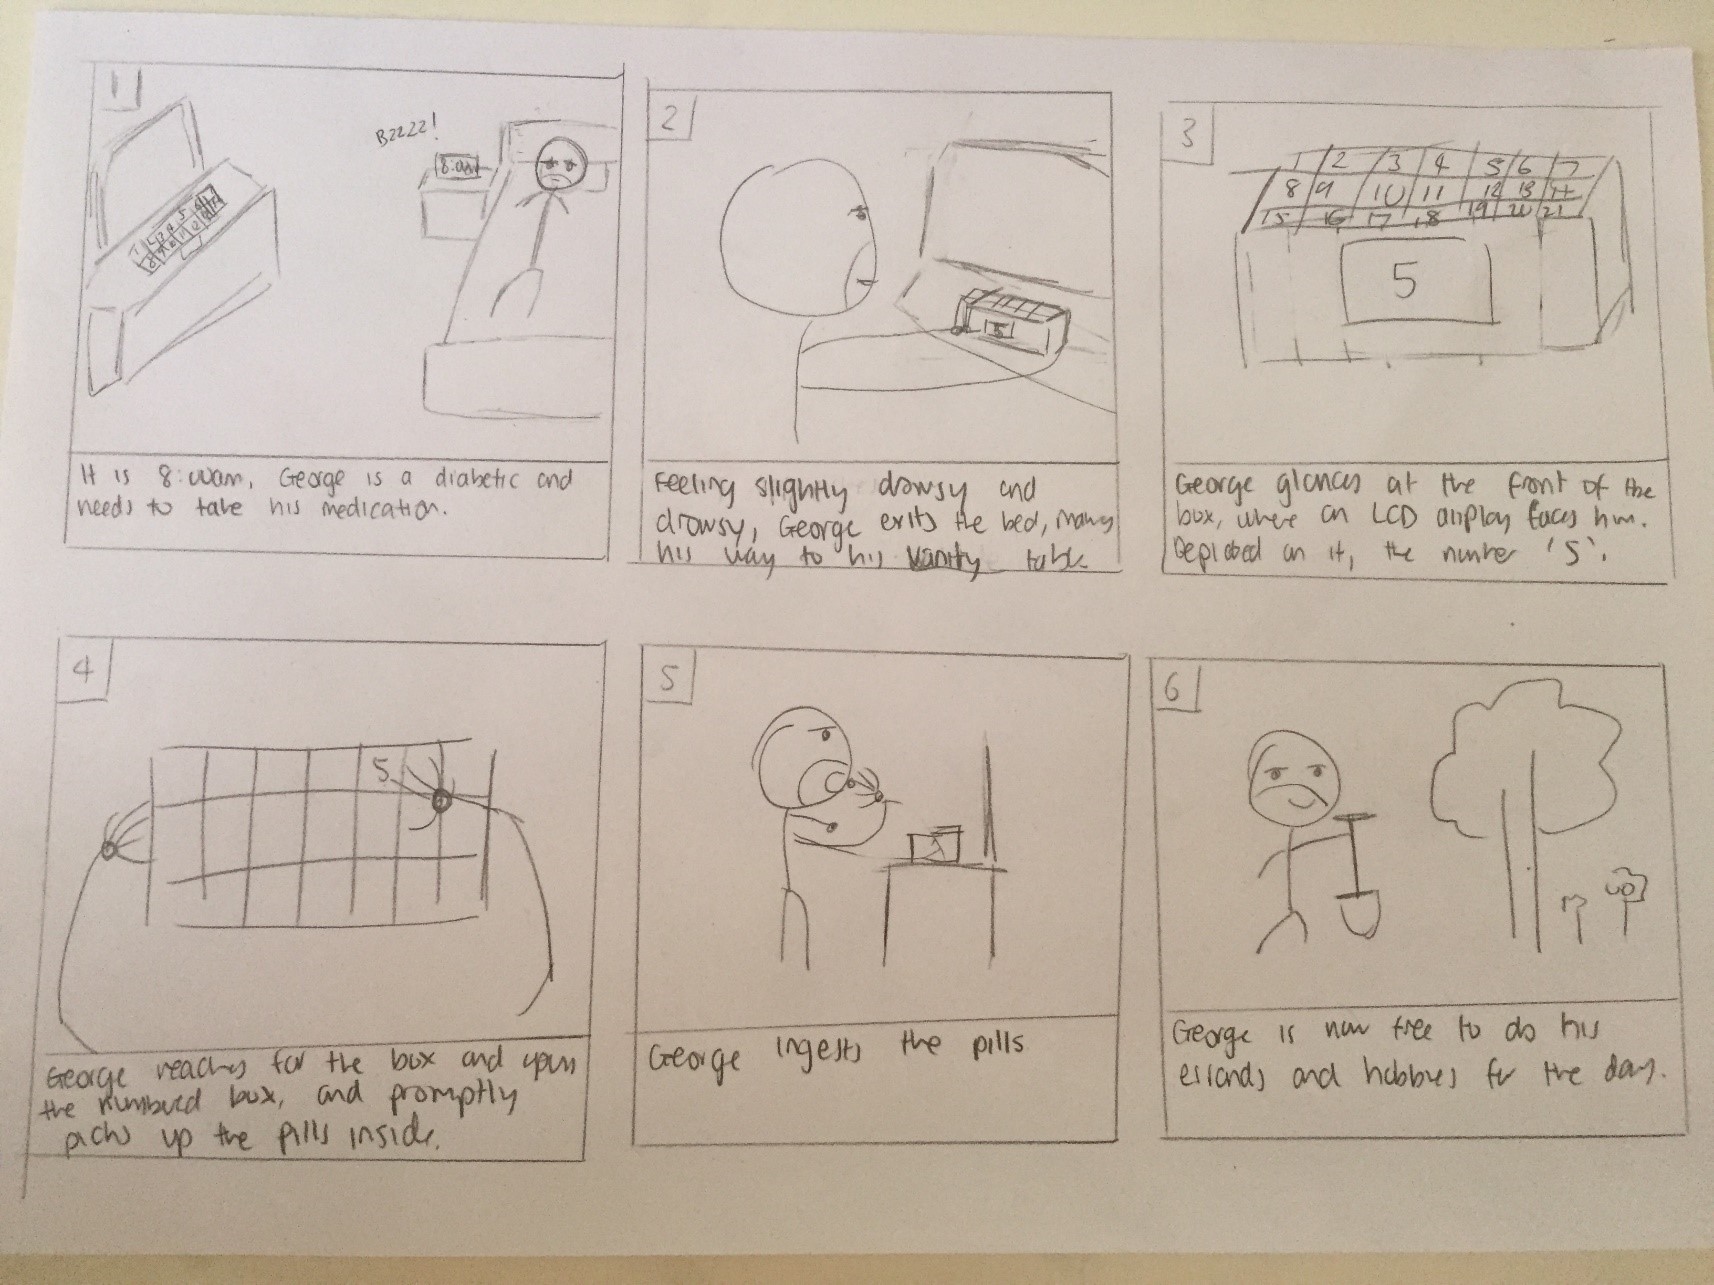 1
Bzzzz!
8:00am
It is 8:00am, George is a diabetic and
needs to take his medication.
2
5
Feeling slightly drowsy and
drowsy, George exits the bed, making
his way to his vanity table
3
1 2 3 4 5 6 7
8 9 10 11 12 13 14
15 16 17 18 19 20 21
5
George glances at the front of the
box, where an LCD display faces him.
Depicted on it, the number '5'.
4
5
George reaches for the box and opens
the numbered box, and promptly
picks up the pills inside.
5
George ingests the pills
6
George is now free to do his
errands and hobbies for the day.